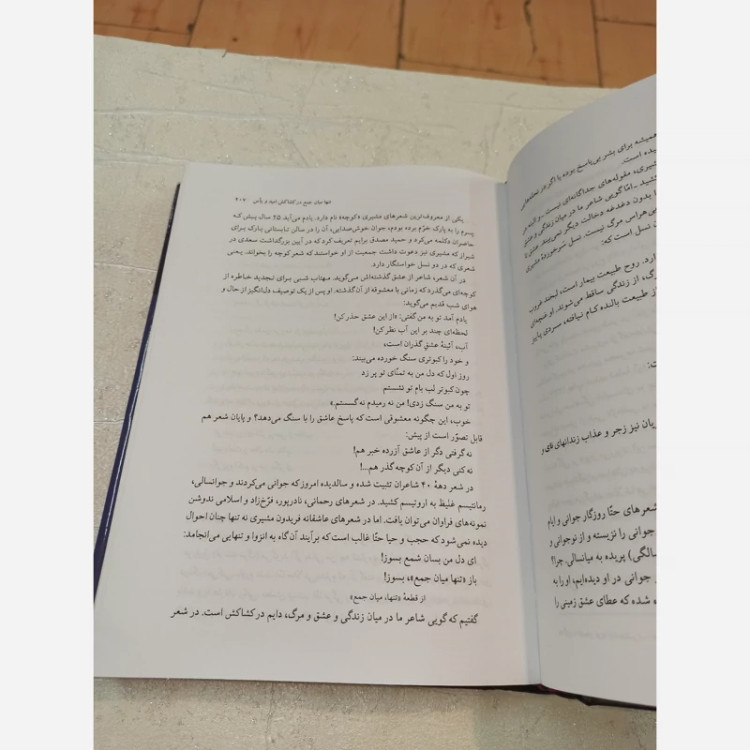 تنها میان جمع در کشاکش امید و یأس ۲۰۵
یکی از معروف‌ترین شعرهای مشیری «کوچه» نام دارد. یادم می‌آید ۲۵ سال پیش که
پسرم را به پارک خرّم برده بودم، جوان خوش‌صدایی، آن را در سالن تابستانی پارک برای
حاضران دکلمه می‌کرد و حمید مصدق برایم تعریف کرد که در آیین بزرگداشت سعدی در
شیراز که مشیری نیز دعوت داشت جمعیت از او خواستند که شعر کوچه را بخواند. یعنی
شعری که در دو نسل خواستگار دارد.
در آن شعر، شاعر از عشق گذشته‌اش می‌گوید. مهتاب شبی برای تجدید خاطره از
کوچه‌ای می‌گذرد که زمانی با معشوقه از آن گذشته. او پس از یک توصیف دل‌انگیز از حال و
هوای شب قدیم می‌گوید:
یادم آمد تو به من گفتی: «از این عشق حذر کن!
لحظه‌ای چند بر این آب نظر کن!
آب، آئینهٔ عشقِ گذران است،
و خود را کبوتری سنگ خورده می‌بیند:
روز اول که دل من به تمنّای تو پر زد
چون کبوتر لب بام تو نشستم
تو به من سنگ زدی! من نه رمیدم نه گسستم.»
خوب، این چگونه معشوقی است که پاسخ عاشق را با سنگ می‌دهد؟ و پایان شعر هم
قابل تصوّر است از پیش:
نه گرفتی دگر از عاشق آزرده خبر هم!
نه کنی دیگر از آن کوچه گذر هم...!
در شعر دههٔ ۴۰ شاعران تثبیت شده و سالدیده امروز که جوانی می‌کردند و جوانسالی،
رمانتیسم غلیظ به اروتیسم کشید. در شعرهای رحمانی، نادرپور، فرّخ‌زاد و اسلامی ندوشن
نمونه‌های فراوان می‌توان یافت. اما در شعرهای عاشقانه فریدون مشیری نه تنها چنان احوال
دیده نمی‌شود که حجب و حیا حتّا غالب است که برآیند آن گاه به انزوا و تنهایی می‌انجامد:
ای دل من بسان شمع بسوز!
باز «تنها میان جمع»، بسوز!
از قطعهٔ «تنها، میان جمع»
گفتیم که گویی شاعر ما در میان زندگی و عشق و مرگ، دایم در کشاکش است. در شعر
همیشه برای بشر بی‌پاسخ بوده یا اگر در
یده است.
مشیری، مقوله‌های جداگانه‌ای نیست. و البته
کشید... امّا گویی شاعر ما در میان زندگی و عشق
را بدون دغدغه دخالت دیگر می‌بیند. عشق
بی‌هراس مرگ نیست. نسل سرخوردهٔ مشیری
ن نسل است که:
دارد. روح طبیعت بیمار است، لبخند غروب
رگ، از زندگی ساقط می‌شوند. او
از طبیعت بالنده کام نیافته، سردی پاییز
ت:
ریان نیز زجر و عذاب زندانهای
شعرهای حتّا روزگار جوانی و ایام
جوانی را نزیسته و از نوجوانی و
سالگی) پریده به میانسالی. چرا؟
جوانی در او دیده‌ایم، او را به
ده شده که عطای عشق زمینی را